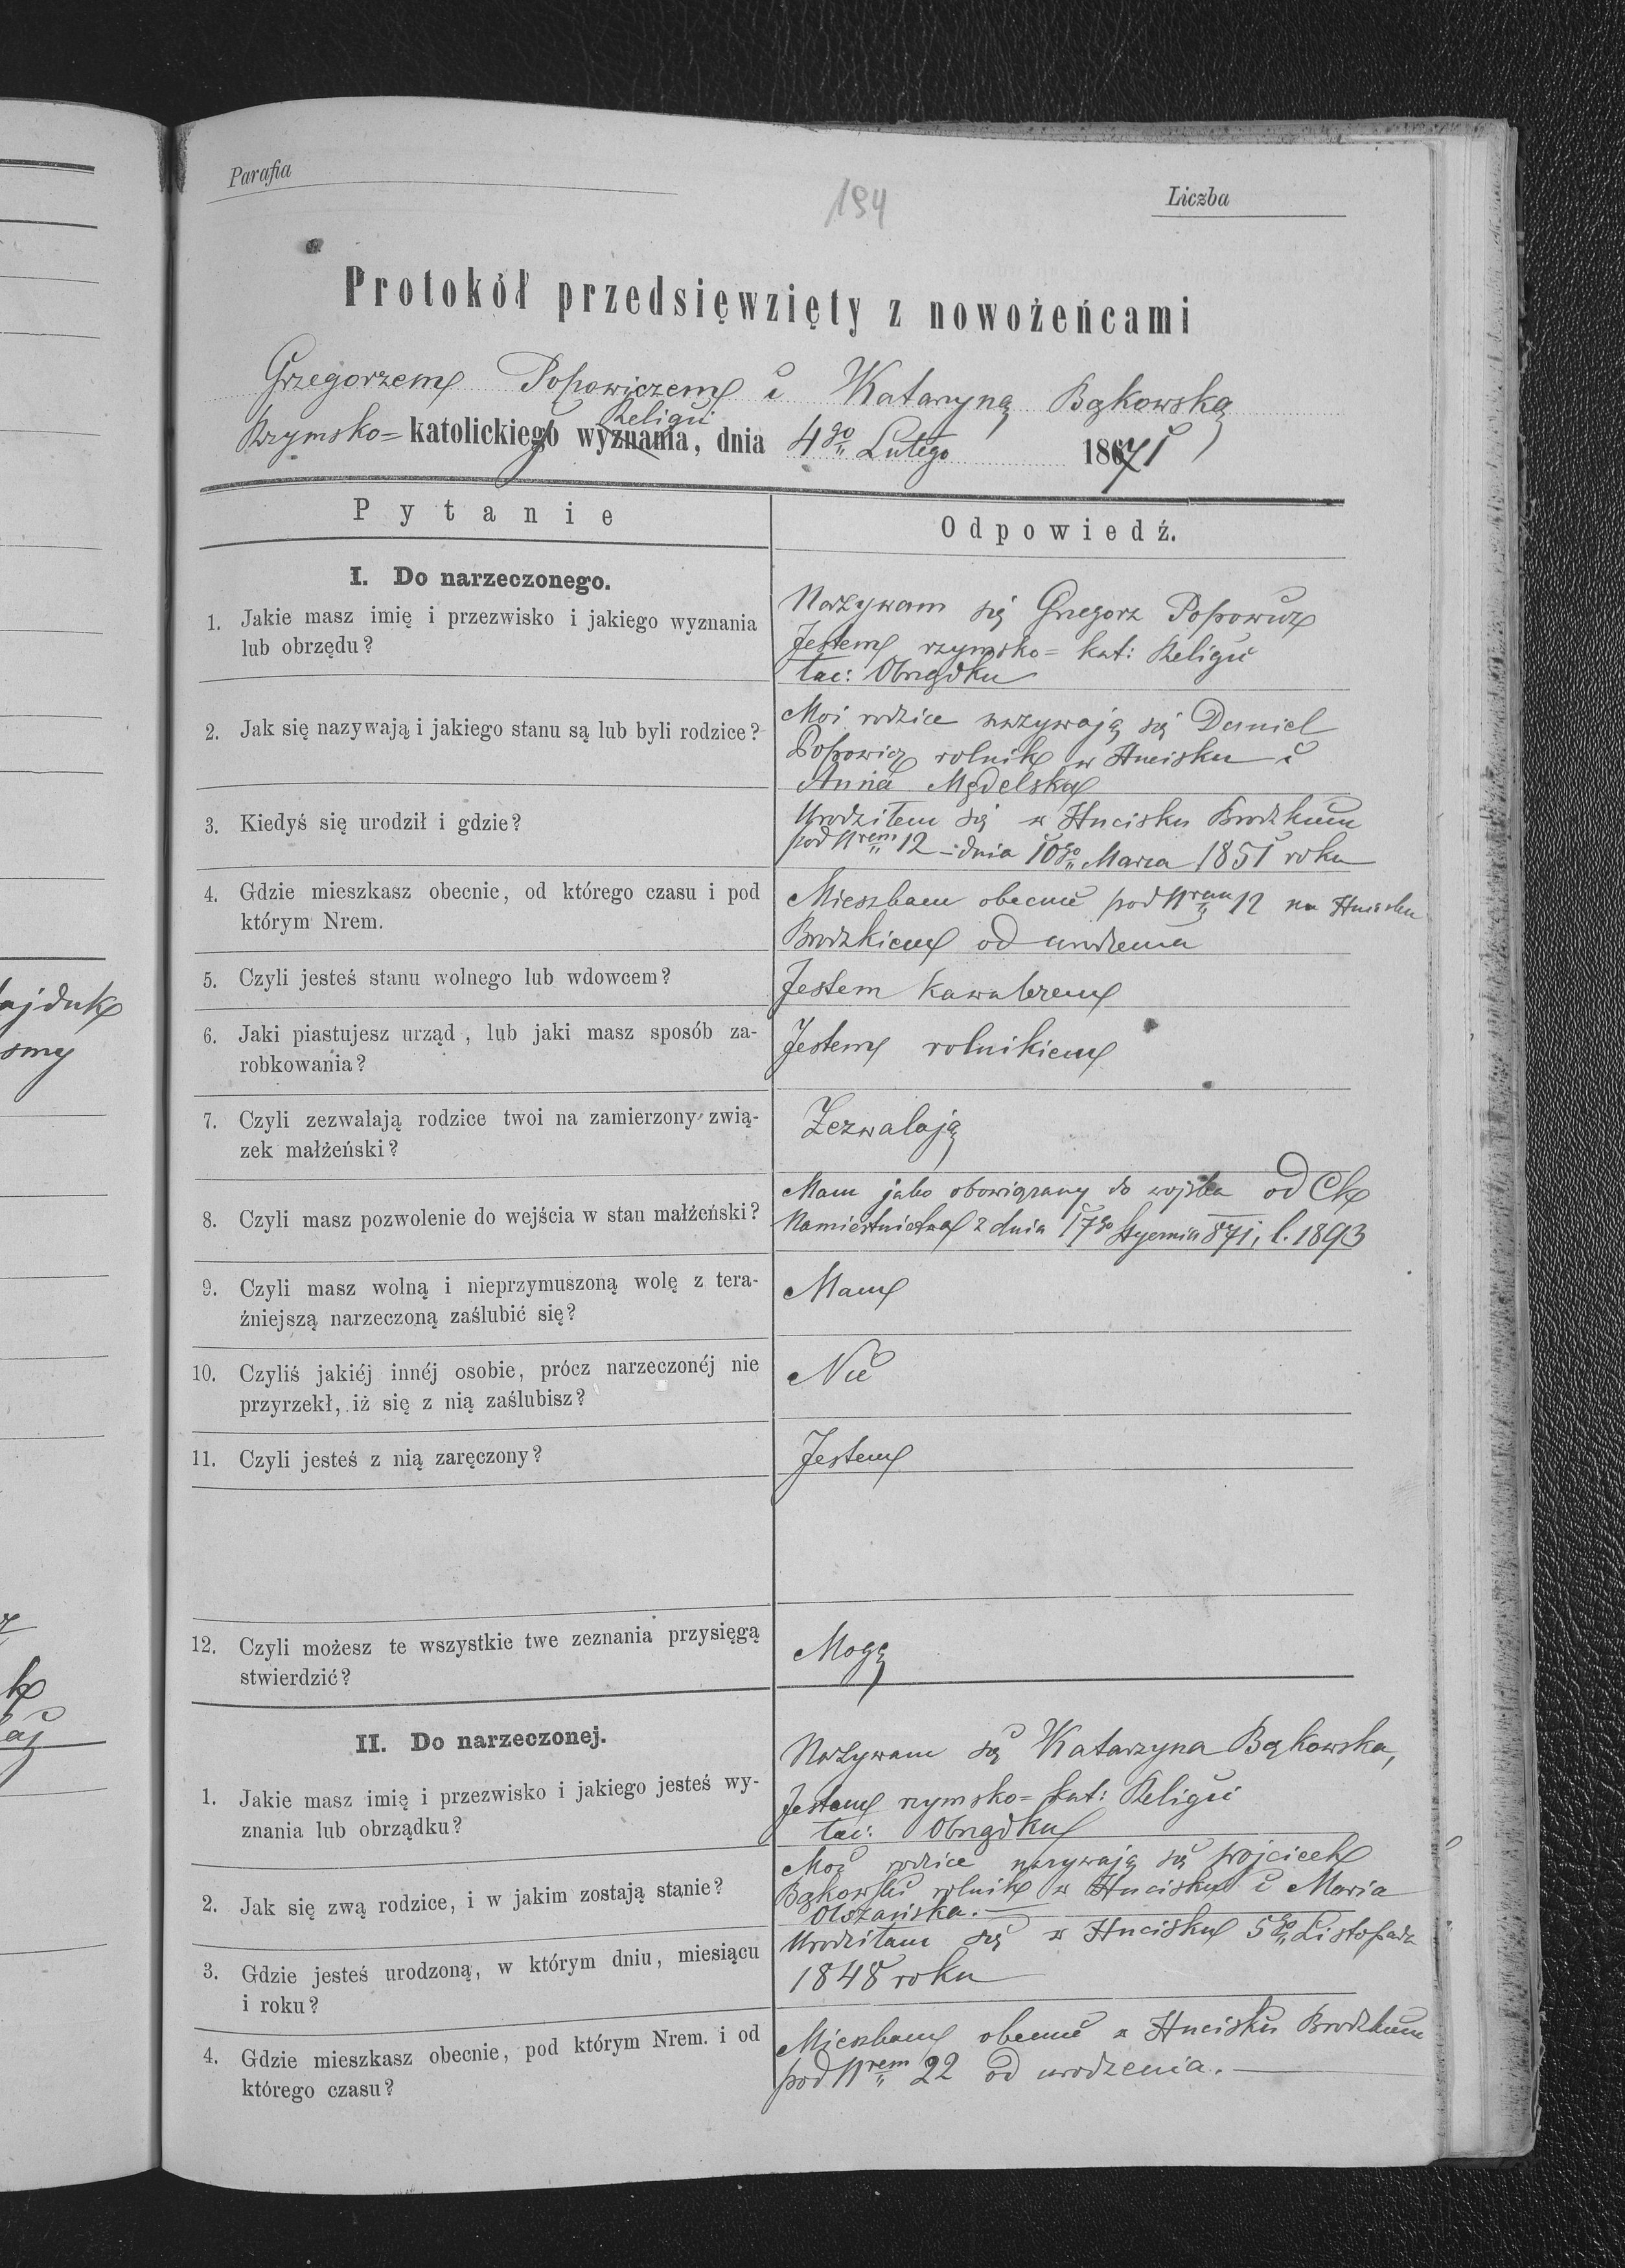 Parafia
194
Liczba
Protokół przedsięwzięty z nowożeńcami
Grzegorzem Popowiczem i Katarzyną Bąkowską
Religii
Rzymsko= katolickiego wyznania, dnia 4go Lutego 1871
Pytanie
Odpowiedź.
I. Do narzeczonego.
1. Jakie masz imię i przezwisko i jakiego wyznania
lub obrzędu?
Nazywam się Grzegorz Popowicz
Jestem rzymsko= kat: Religii
łac: Obrządku
2. Jak się nazywają i jakiego stanu są lub byli rodzice?
Moi rodzice nazywają się Daniel
Popowicz rolnik w Hucisku i
Anna
3. Kiedyś się urodził i gdzie?
Urodziłem się w Hucisku Brodzkiem
pod Nrem 12 – dnia 10go Marca 1851 roku
4. Gdzie mieszkasz obecnie, od którego czasu i pod
którym Nrem.
Mieszkam obecnie pod Nrem 12 na Hucisku
Brodzkiem od urodzenia
5. Czyli jesteś stanu wolnego lub wdowcem?
Jestem kawalerem
6. Jaki piastujesz urząd, lub jaki masz sposób za-
robkowania?
Jestem rolnikiem
7. Czyli zezwalają rodzice twoi na zamierzony zwią-
zek małżeński?
Zezwalają
8. Czyli masz pozwolenie do wejścia w stan małżeński?
Mam jako obowiązany do wojska od Ck
Namiestnictwa z dnia 17go Stycznia 871, l. 1893
9. Czyli masz wolną i nieprzymuszoną wolę z tera-
źniejszą narzeczoną zaślubić się?
Mam
10. Czyliś jakiéj innéj osobie, prócz narzeczonéj nie
przyrzekł, iż się z nią zaślubisz?
Nie
11. Czyli jesteś z nią zaręczony?
Jestem
12. Czyli możesz te wszystkie twe zeznania przysięgą
stwierdzić?
Mogę
II. Do narzeczonej.
1. Jakie masz imię i przezwisko i jakiego jesteś wy-
znania lub obrządku?
Nazywam się Katarzyna Bąkowska,
Jestem rzymsko= kat: Religii
łac: Obrządku
2. Jak się zwą rodzice, i w jakim zostają stanie?
Moi rodzice nazywają się Wojciech
Bąkowski rolnik w Hucisku i Maria
Olszańska.
3. Gdzie jesteś urodzoną, w którym dniu, miesiącu
i roku?
Urodziłam się w Hucisku 5go Listopada
1848 roku
4. Gdzie mieszkasz obecnie, pod którym Nrem. i od
którego czasu?
Mieszkam obecnie w Hucisku Brodzkiem
pod Nrem 22 od urodzenia.